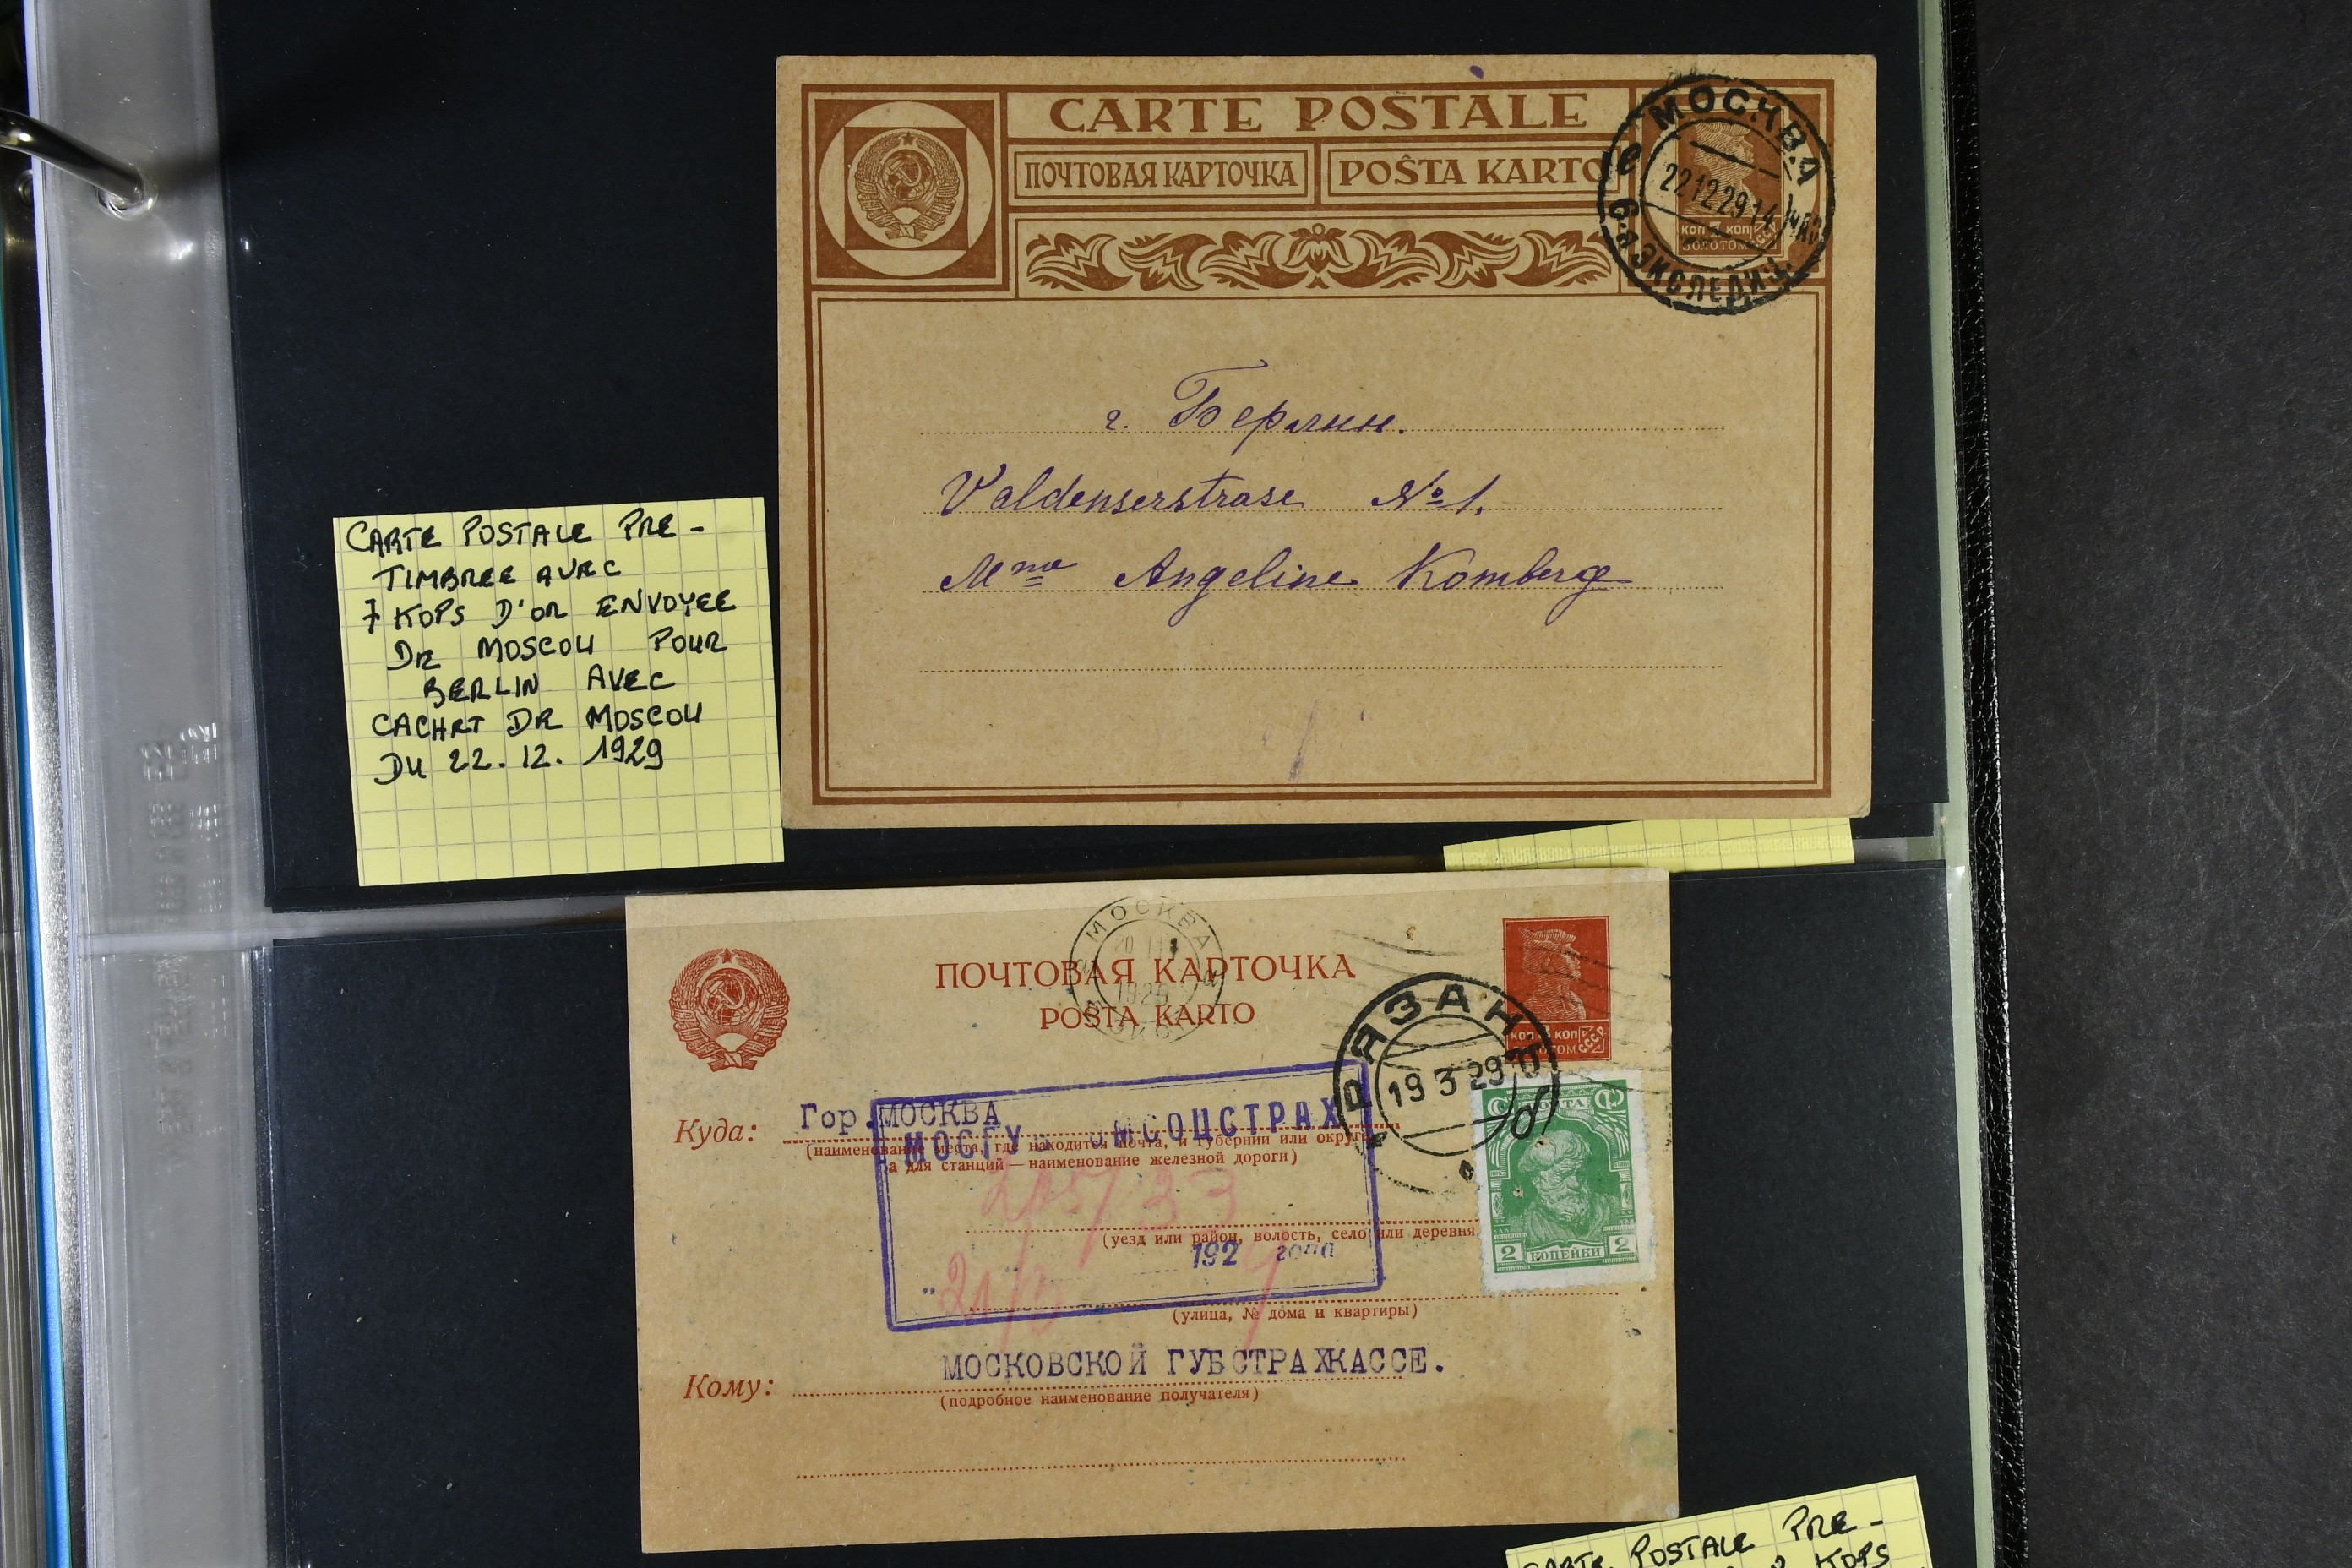 CARTE POSTALE
ПОЧТОВАЯ КАРТОЧКА
POŜTA KARTO
МОСКВА
22 12 29 14
6-Я ЭКСПЕДИЦ.
КОП 7 КОП
ЗОЛОТОМ
СССР
г. Берлин.
Valdenserstrase № 1.
Mme Angeline Komberg
CARTE POSTALE PRE-
TIMBREE AVEC
7 KOPS D'OR ENVOYEE
DE MOSCOU POUR
BERLIN AVEC
CACHET DE MOSCOU
DU 22.12.1929
МОСКВА
1929
ПОЧТОВАЯ КАРТОЧКА
POŜTA KARTO
КОП КОП
ЗОЛОТОМ
СССР
РЯЗАН
19 3 29
Куда: Гор.МОСКВА
(наименование места, где находится почта, и губернии или округа,
а для станций — наименование железной дороги)
(уезд или район, волость, село или деревня
192 года
(улица, № дома и квартиры)
ПОЧТА
2 КОПЕЙКИ 2
Кому: МОСКОВСКОЙ ГУБСТРАХКАССЕ.
(подробное наименование получателя)
CARTE POSTALE PRE-
KOPS